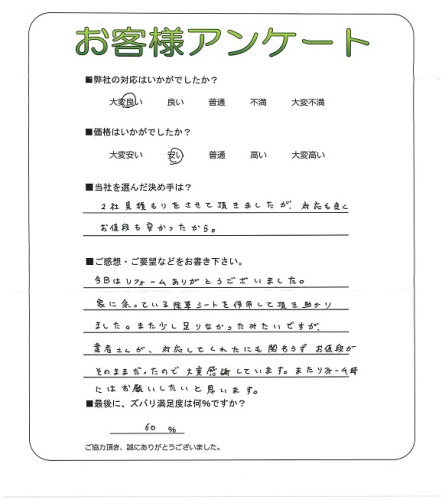 お客様アンケート
■弊社の対応はいかがでしたか？
大変良い 良い 普通 不満 大変不満
■価格はいかがでしたか？
大変安い 安い 普通 高い 大変高い
■当社を選んだ決め手は？
2社見積もりをさせて頂きましたが、対応も良く
お値段も安かったから。
■ご感想・ご要望などをお書き下さい。
今回はリフォームありがとうございました。
家に余っている除草シートを使用して頂き助かり
ました。また少し足りなかったみたいですが、
業者さんが、対応してくれたにも関わらず お値段が
そのままだったので大変感謝しています。またリフォーム時
にはお願いしたいと思います。
■最後に、ズバリ満足度は何％ですか？
60 ％
ご協力頂き、誠にありがとうございました。